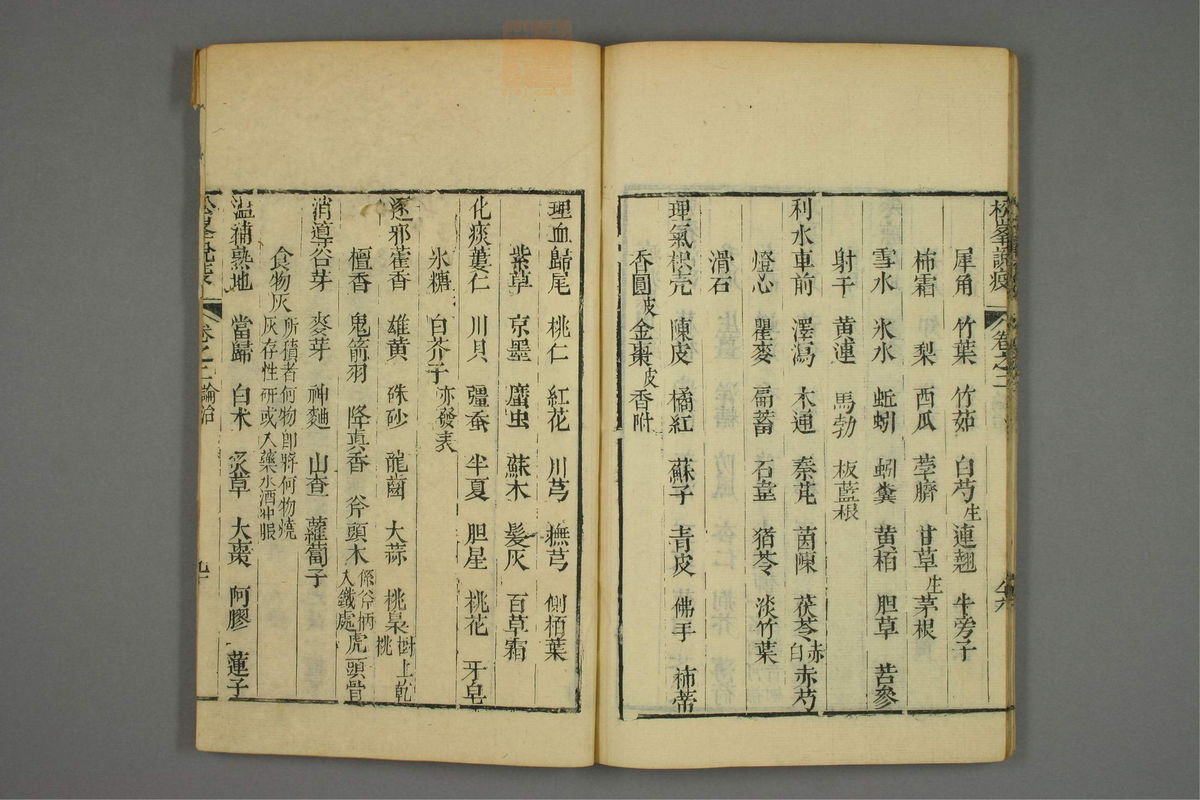 松峯說疫 卷之二
犀角 竹葉 竹茹 白芍生 連翹 牛旁子
柿霜 梨 西瓜 荸臍 甘草生 茅根
雪水 氷水 蚯蚓 蚓糞 黄栢 胆草 苦參
射干 黄連 馬勃 板藍根
利水車前 澤瀉 木通 秦艽 茵陳 茯苓赤白 赤芍
燈心 瞿麥 萹蓄 石韋 猪苓 淡竹葉
滑石
理氣枳壳 陳皮 橘紅 蘇子 青皮 佛手 柿蒂
香圓皮 金棗皮 香附
理血歸尾 桃仁 紅花 川芎 撫芎 側栢葉
紫草 京墨 䗪虫 蘇木 髮灰 百草霜
化痰蔞仁 川貝 殭蚕 半夏 胆星 桃花 牙皂
氷糖 白芥子亦發表
逐邪藿香 雄黄 硃砂 龍齒 大蒜 桃梟樹上乾桃
檀香 鬼箭羽 降真香 斧頭木係斧柄入鐵處 虎頭骨
消導谷芽 麥芽 神麯 山查 蘿蔔子
食物灰所積者何物即將何物燒灰存性研或入藥水酒冲服
温補熟地 當歸 白术 炙草 大棗 阿膠 蓮子
松峯說疫 卷之二 論治